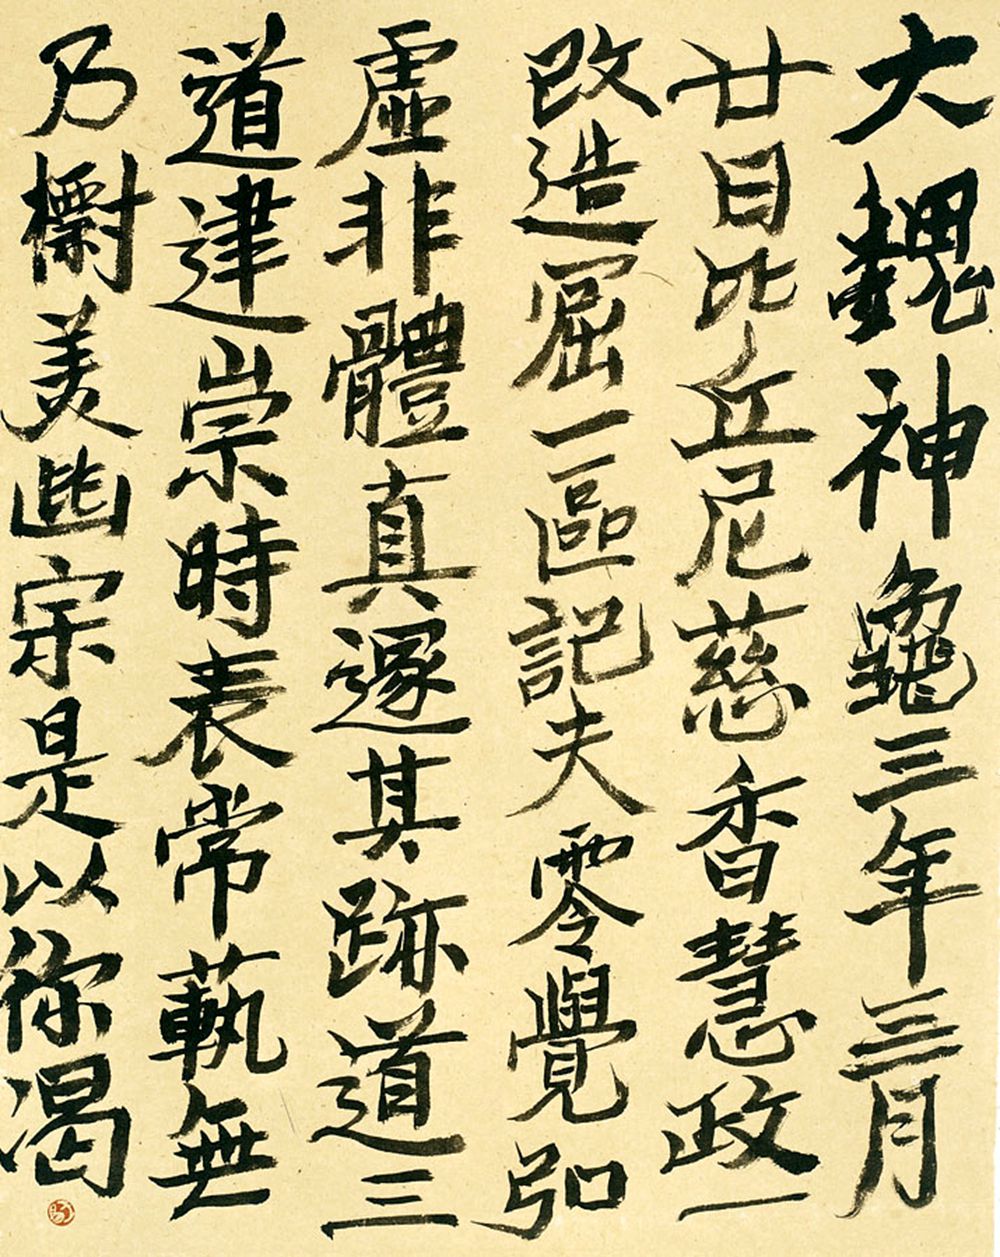 大魏神龜三年三月
廿日比丘尼慈香慧政一
改造窟一區記夫零覺弘
虛非體真邃其跡道三
道建崇時表常蓻無
乃美幽宗是以你渴